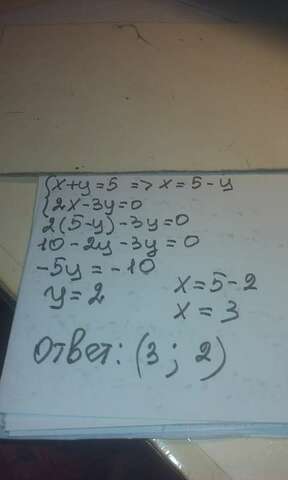 {x+y=5 => x=5-y
{2x-3y=0
2(5-y)-3y=0
10-2y-3y=0
-5y=-10
y=2
x=5-2
x=3
Ответ: (3; 2)